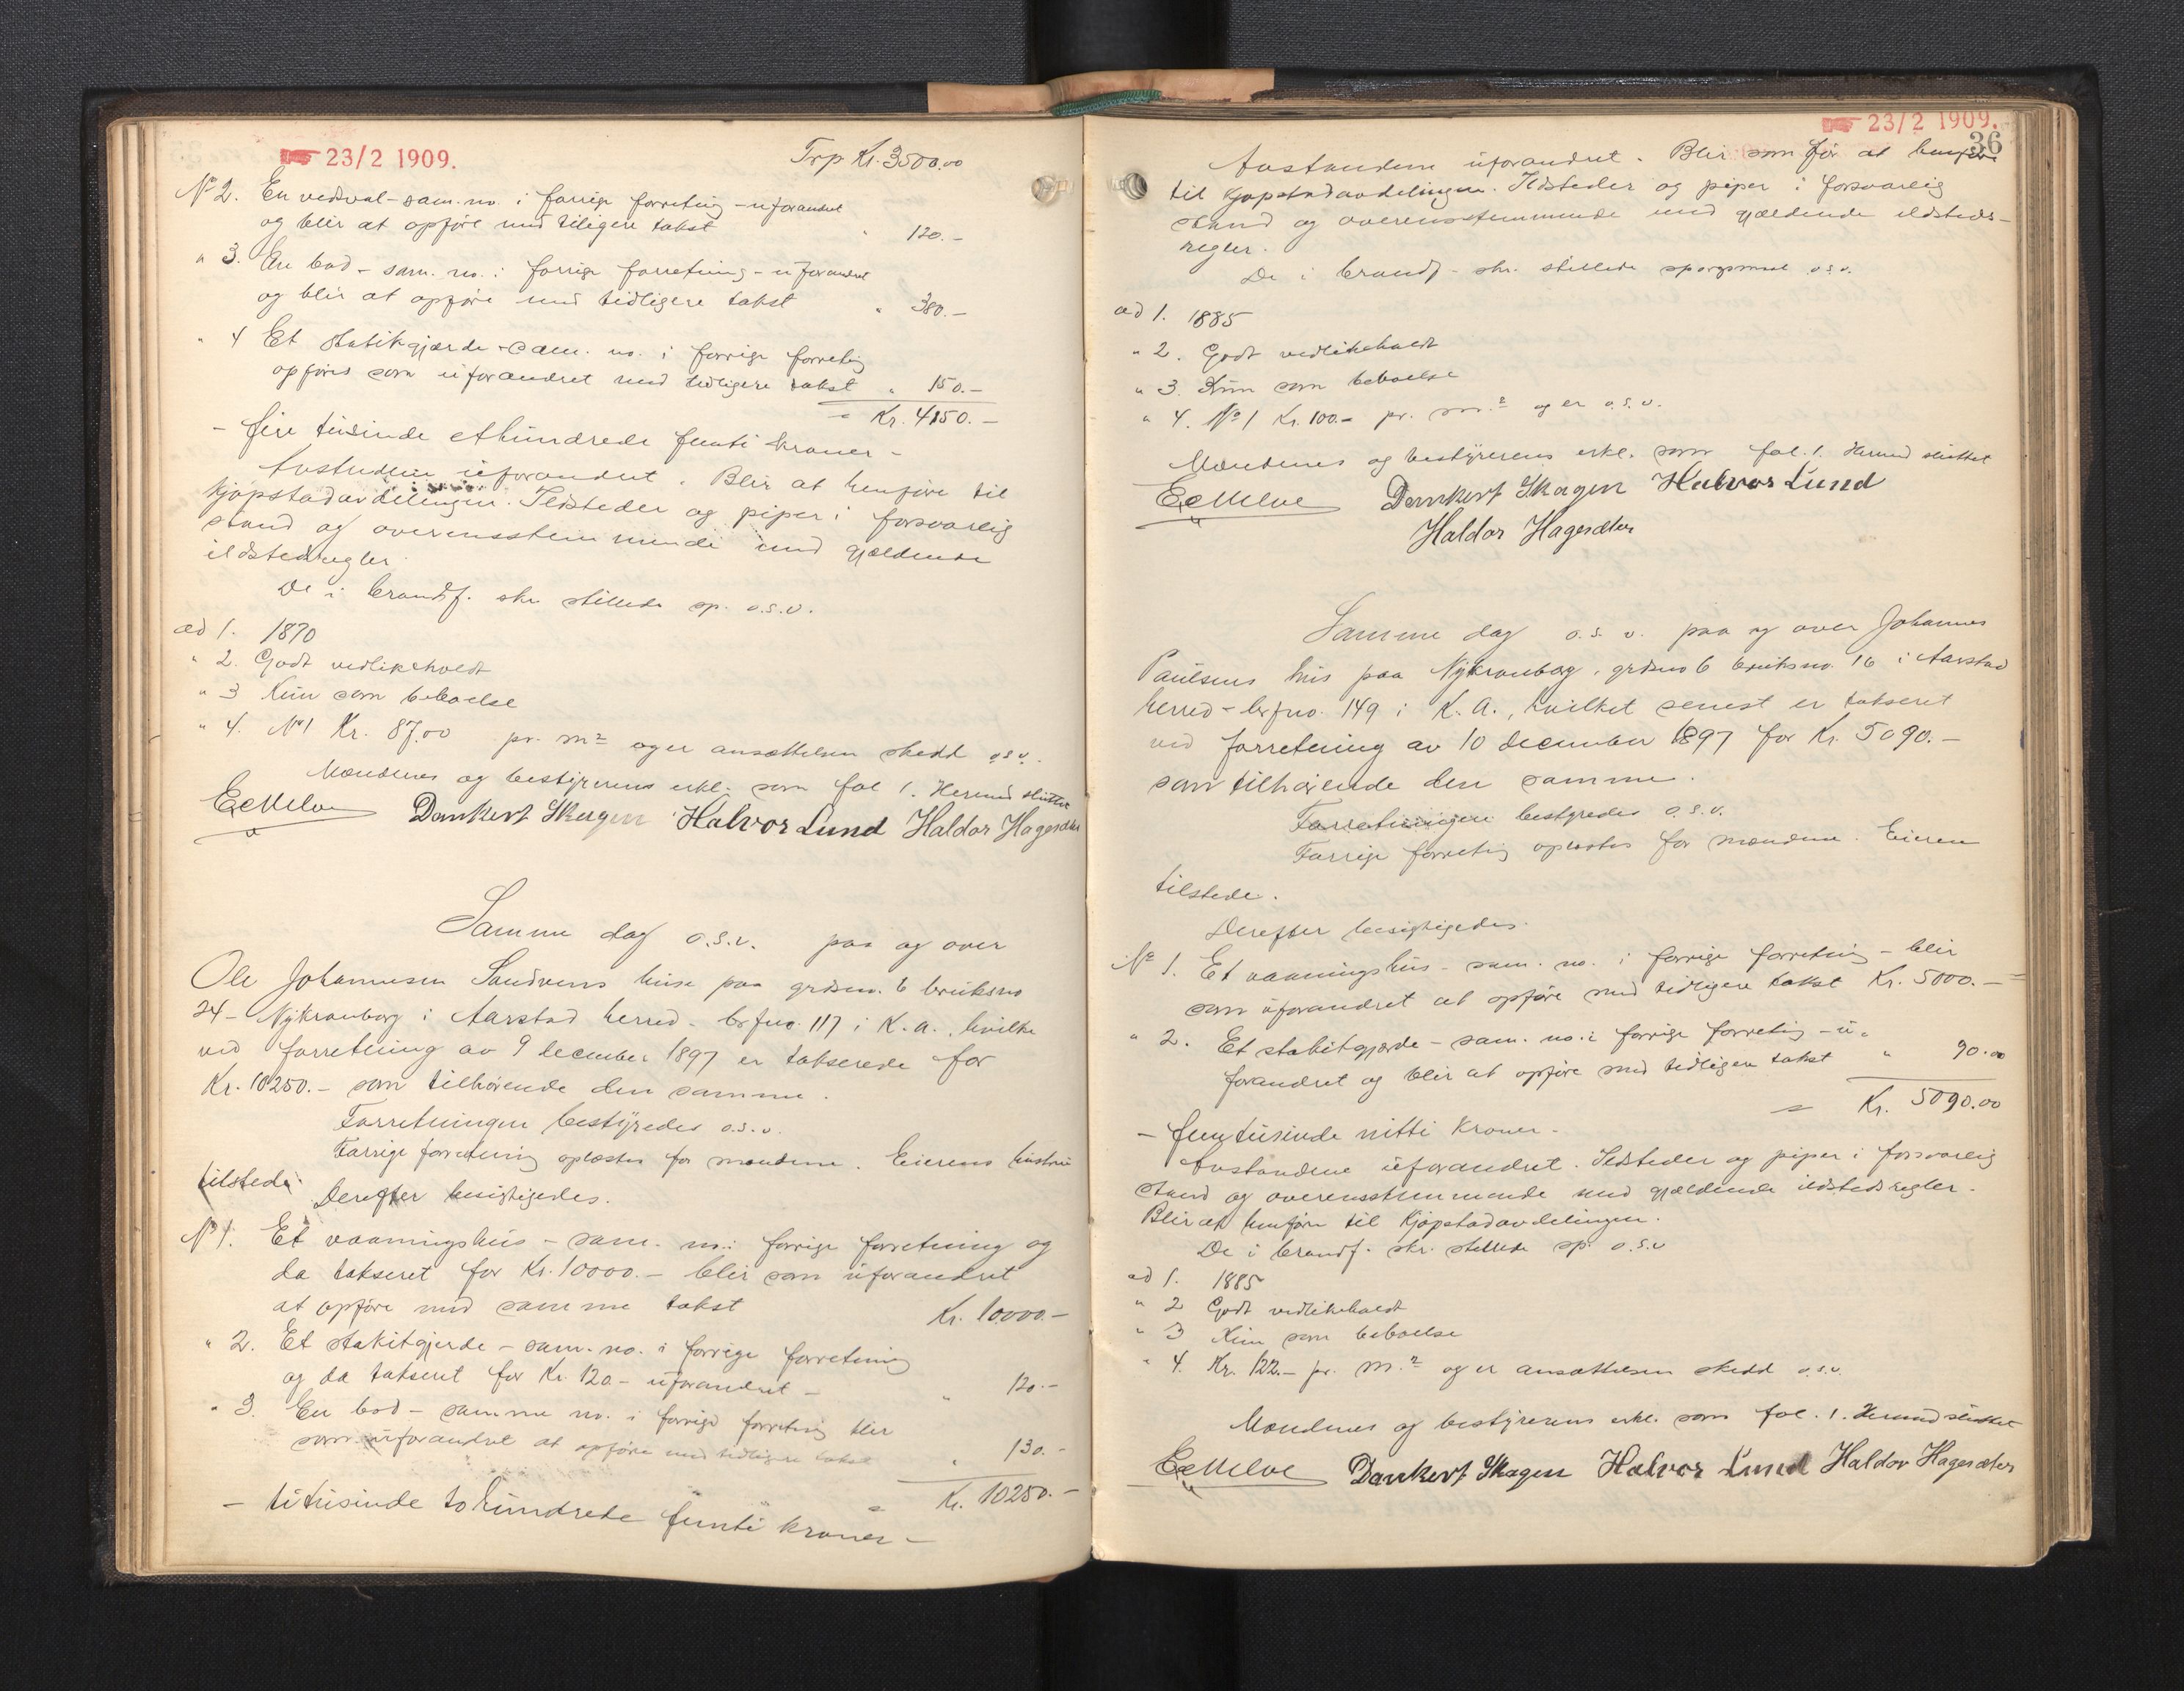 23/2 1909.
Trp Kr. 3500.00
No 2. En vedsval - sam. no. i forrige forretnig - uforandret
og blir at opføre med tiligere takst " 120.-
" 3. En bod - sam. no. i forrige forretning - uforandret
og blir at opføre med tidligere takst " 380.-
" 4 Et stakitgjærde - sam. no. i forrige forretnig
opføres som uforandret med tidligere takst " 150.-
= Kr. 4150.-
- fire tusinde ethundrede femti kroner -
Avstandene uforandret. Blir at henføre til
kjøpstadavdelingen. Ildsteder og piper i forsvarlig
stand og overensstemmende med gjældende
ildstedsregler.
De i brandf. skr stillede sp. o.s.v.
ad 1. 1870
" 2. Godt vedlikeholdt
" 3 Kun som beboelse
" 4. No 1 Kr. 87.00 pr. m2 og er ansættelsen skedd o.s.v.
Mændenes og bestyrerens erkl. som fol 1. Hermed sluttet
Dankert Skagen Halvor Lund Haldor Hagesæter
Samme dag o.s.v. paa og over
Ole Johannesen Sandvens huse paa grdsno. 6 bruksno
24 - Nykronborg i Aarstad herred - brfno. 117 i K. A., hvilke
ved forretning av 9 december 1897 er takserede for
Kr. 10250.- som tilhørende den samme.
Forretningen bestyredes o.s.v.
Forrige forretning oplæstes for mændene. Eierens hustru
tilstede.
Derefter besigtigedes.
No 1. Et vaaningshus - sam. no. i forrige forretning og
da takseret for Kr. 10000.- blir som uforandret
at opføre med samme takst Kr. 10000.-
" 2. Et stakitgjerde - sam. no. i forrige forretning
og da takseret for Kr. 120 - uforandret - " 120.-
" 3. En bod - samme no. i forrige forretnig blir
som uforandret at opføre med tidligere takst " 130.-
= Kr. 10250.-
- titusinde tohundrede femti kroner -
23/2 1909.
36
Avstandene uforandret. Blir som før at henføre
til kjøpstadavdelingen. Ildsteder og piper i forsvarlig
stand og overensstemmende med gjældende ildsteds-
regler.
De i brandf. skr. stillede spørgsmaal o.s.v.
ad 1. 1885
" 2. Godt vedlikeholdt
" 3. Kun som beboelse
" 4. No 1 Kr. 100.- pr. m.2 og er o.s.v.
Mændenes og bestyrerens erkl. som fol. 1. Hermed sluttet
Dankert Skagen Halvor Lund
Haldor Hagesæter
Samme dag o.s.v. paa og over Johannes
Paulsens hus paa Nykronborg, grdsno 6 bruksno. 16 i Aarstad
herred - brfno. 149 i K. A., hvilket senest er takseret
ved forretning av 10 december 1897 for Kr. 5090.-
som tilhørende den samme.
Forretningen bestyredes o.s.v.
Forrige forretnig oplæstes for mændene. Eieren
tilstede.
Derefter besigtigedes.
No 1. Et vaaningshus - sam. no. i forrige forretnig - blir
som uforandret at opføre med tidligere takst Kr. 5000.-
" 2. Et stakitgjærde - sam. no. i forrige forretnig - u-
forandret og blir at opføre med tidligere takst " 90.00
= Kr. 5090.00
- femtusinde nitti kroner -
Avstandene uforandret. Ildsteder og piper i forsvarlig
stand og overensstemmende med gjældende ildstedsregler.
Blir at henføre til kjøpstadavdelingen.
De i brandf. skr. stillede sp. o.s.v
ad 1. 1885
" 2 Godt vedlikeholdt
" 3 Kun som beboelse
" 4. Kr. 122.- pr. m.2 og er ansættelsen skedd o.s.v.
Mændenes og bestyrerens erkl. som fol. 1. Hermed sluttet
Dankert Skagen Halvor Lund Haldor Hagesæter